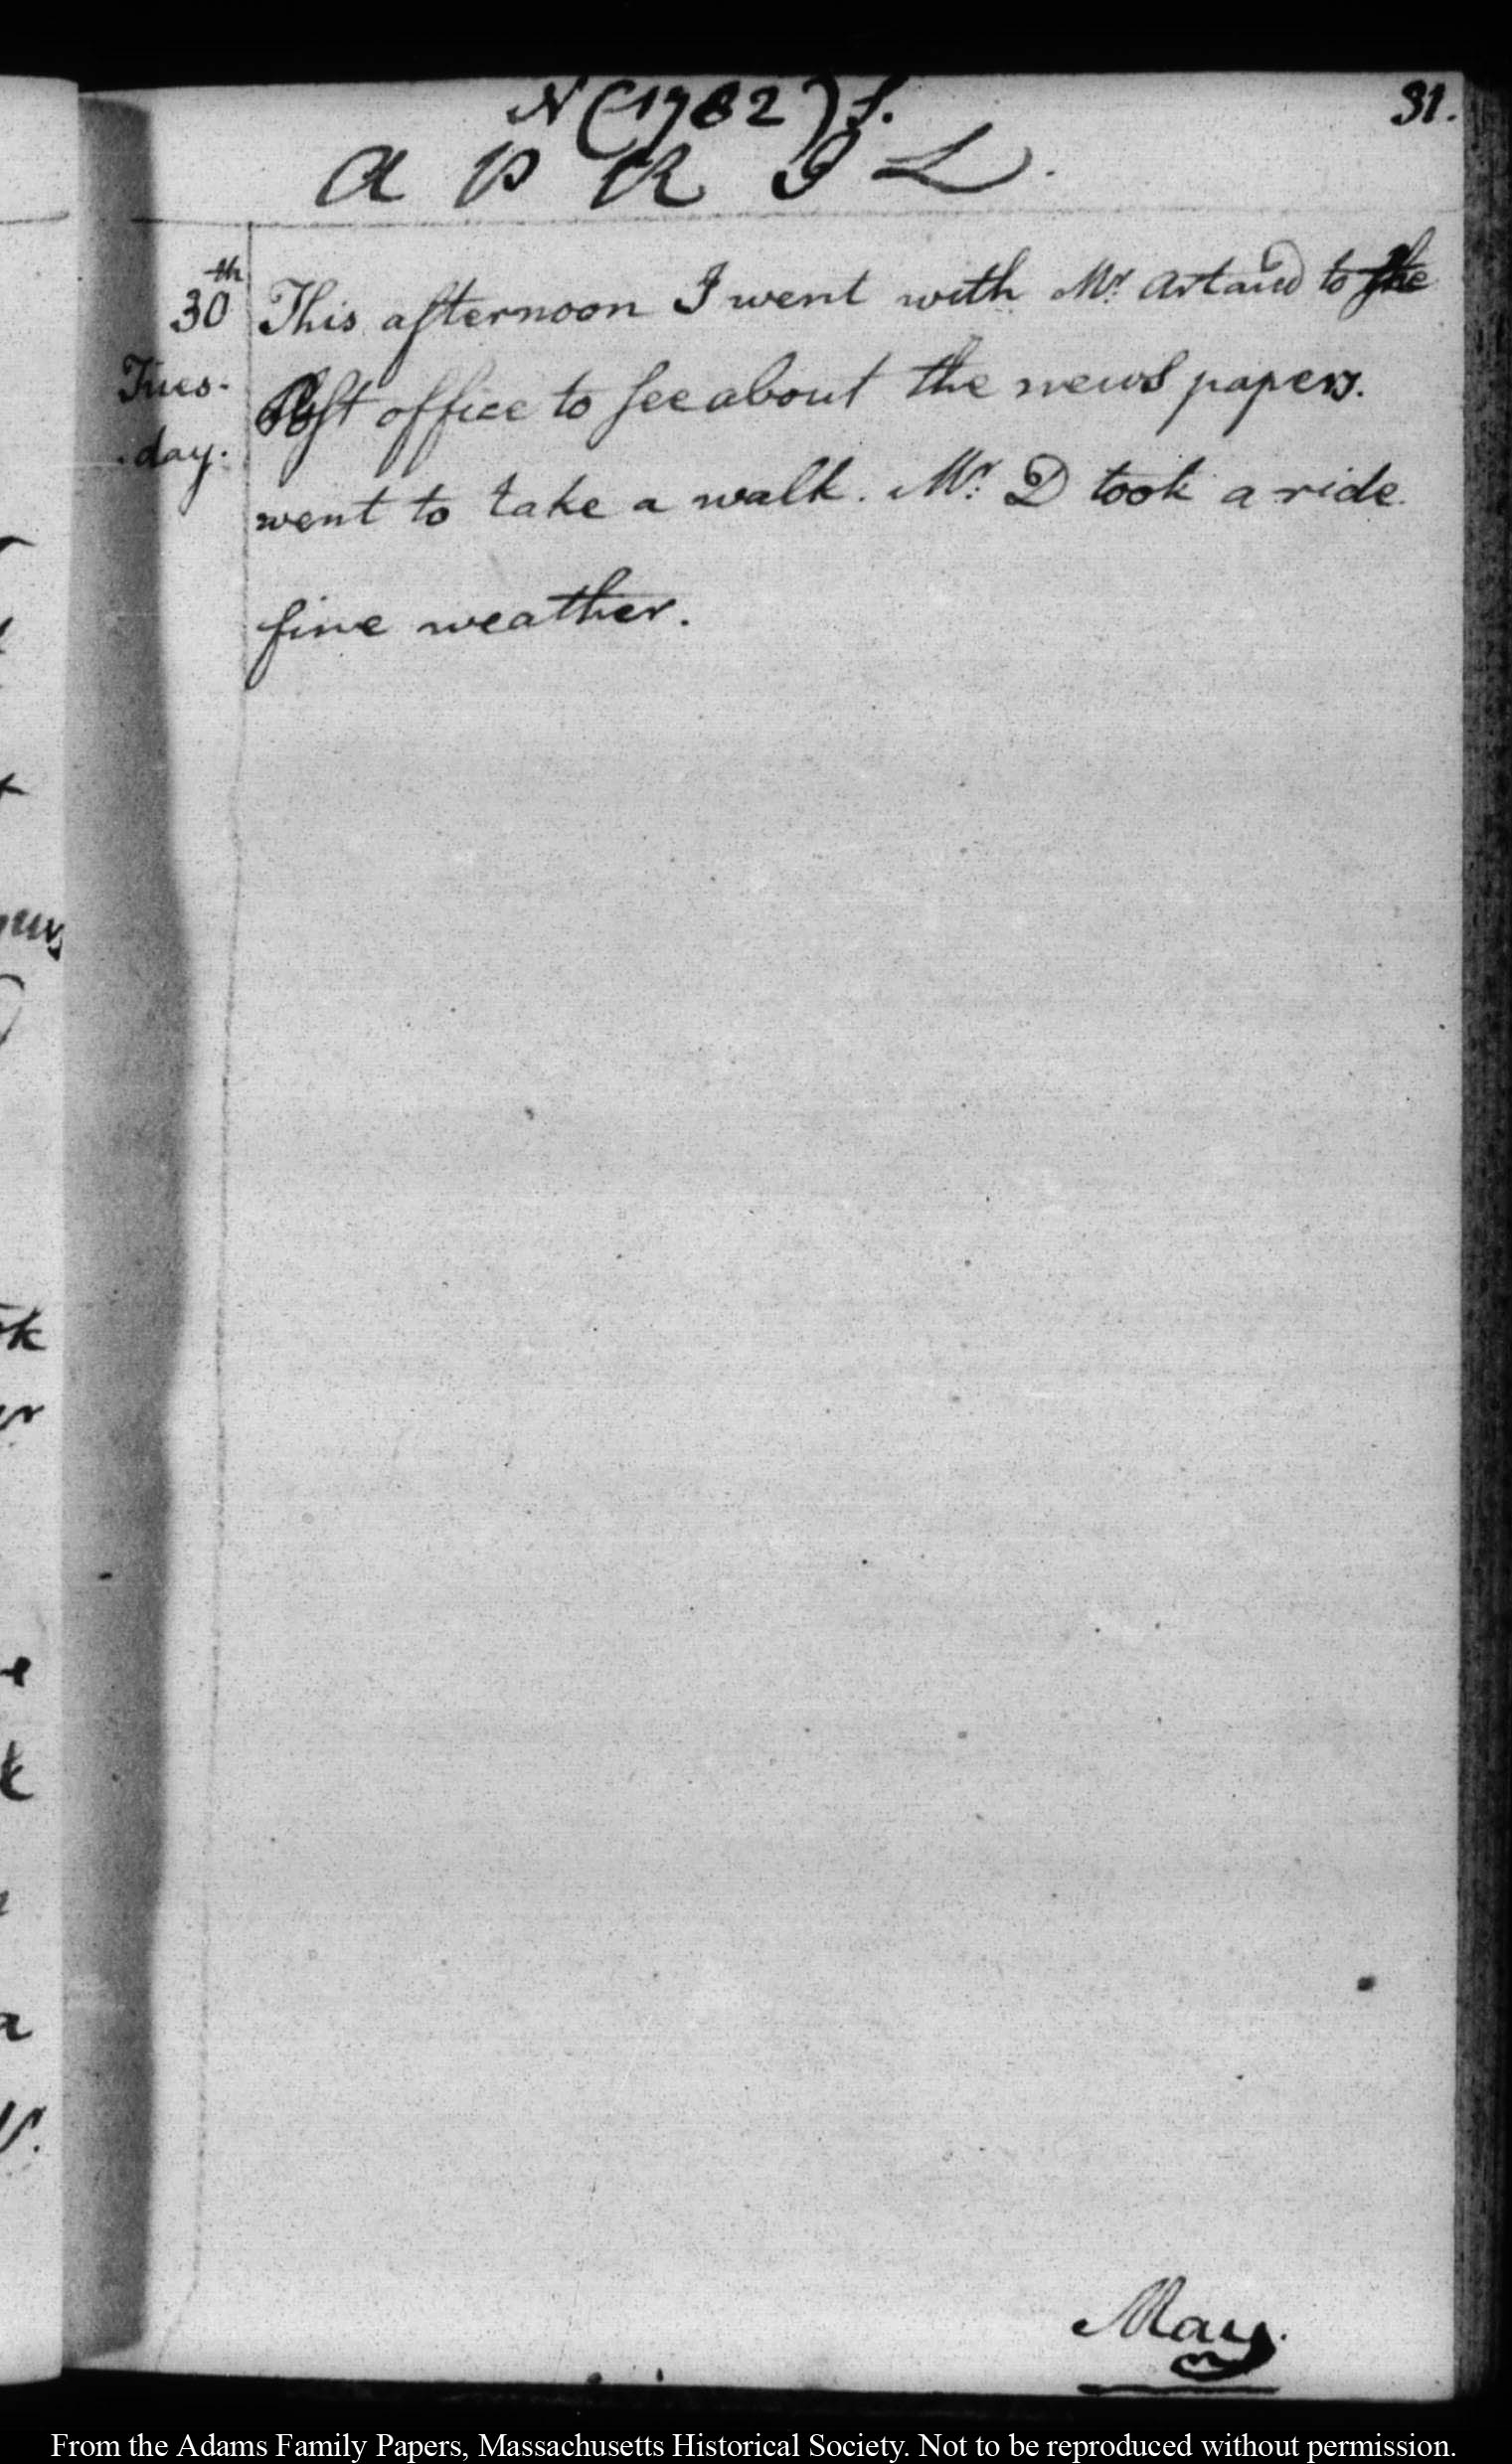 N (1782) S. 31.
APRIL.
30th This afternoon I went with Mr. Artaud to the
Tues- Post office to see about the news papers.
day. went to take a walk. Mr. D took a ride
fine weather.
May.
From the Adams Family Papers, Massachusetts Historical Society. Not to be reproduced without permission.